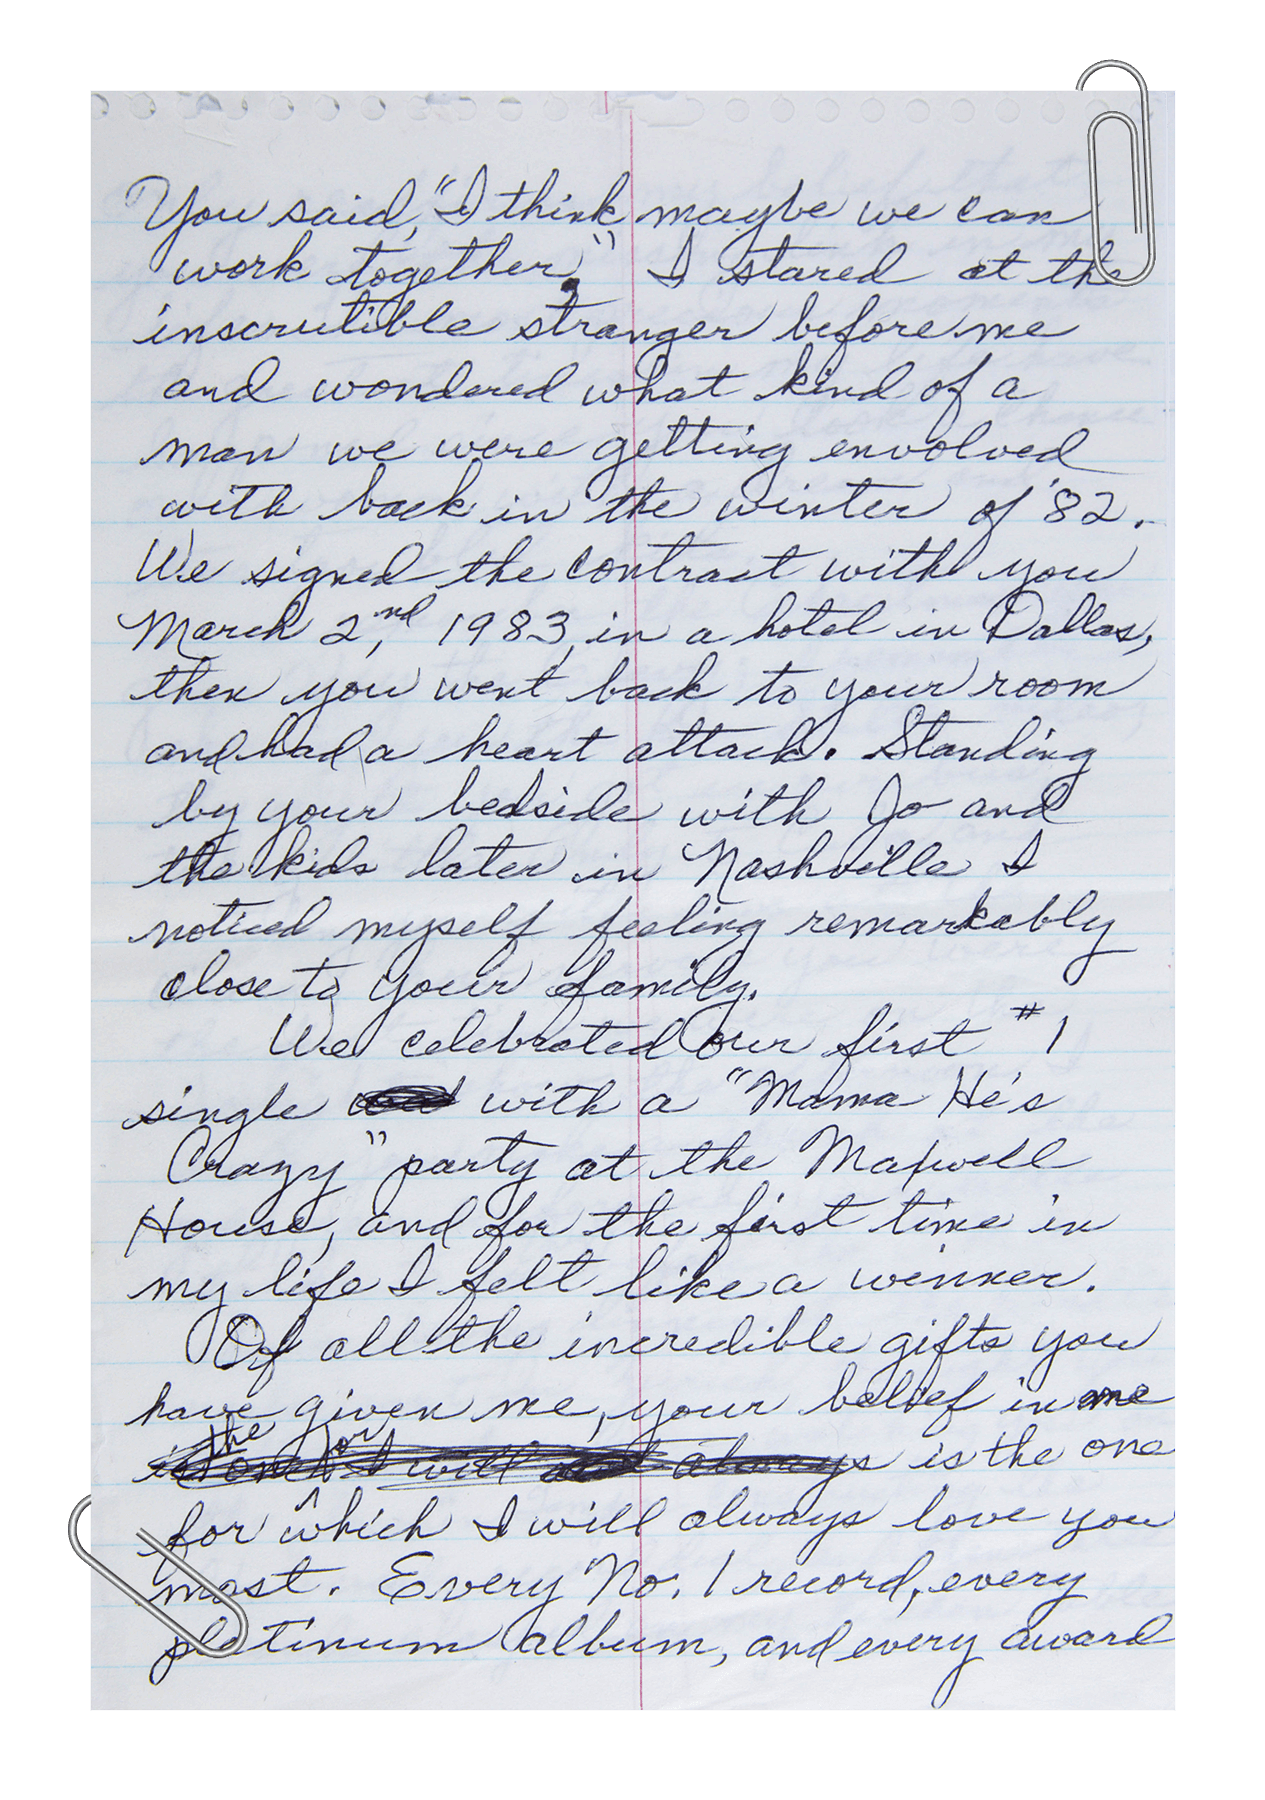 You said, "I think maybe we can
work together." I stared at the
inscrutible stranger before me
and wondered what kind of a
man we were getting envolved
with back in the winter of '82.
We signed the contract with you
March 2nd, 1983, in a hotel in Dallas,
then you went back to your room
and had a heart attack. Standing
by your bedside with Jo and
the kids later in Nashville I
noticed myself feeling remarkably
close to your family.
We celebrated our first #1
single with a "Mama He's
Crazy" party at the Maxwell
House, and for the first time in
my life I felt like a winner.
Of all the incredible gifts you
have given me, your belief in me
the for
is one I will always is the one
for which I will always love you
most. Every No. 1 record, every
platinum album, and every award